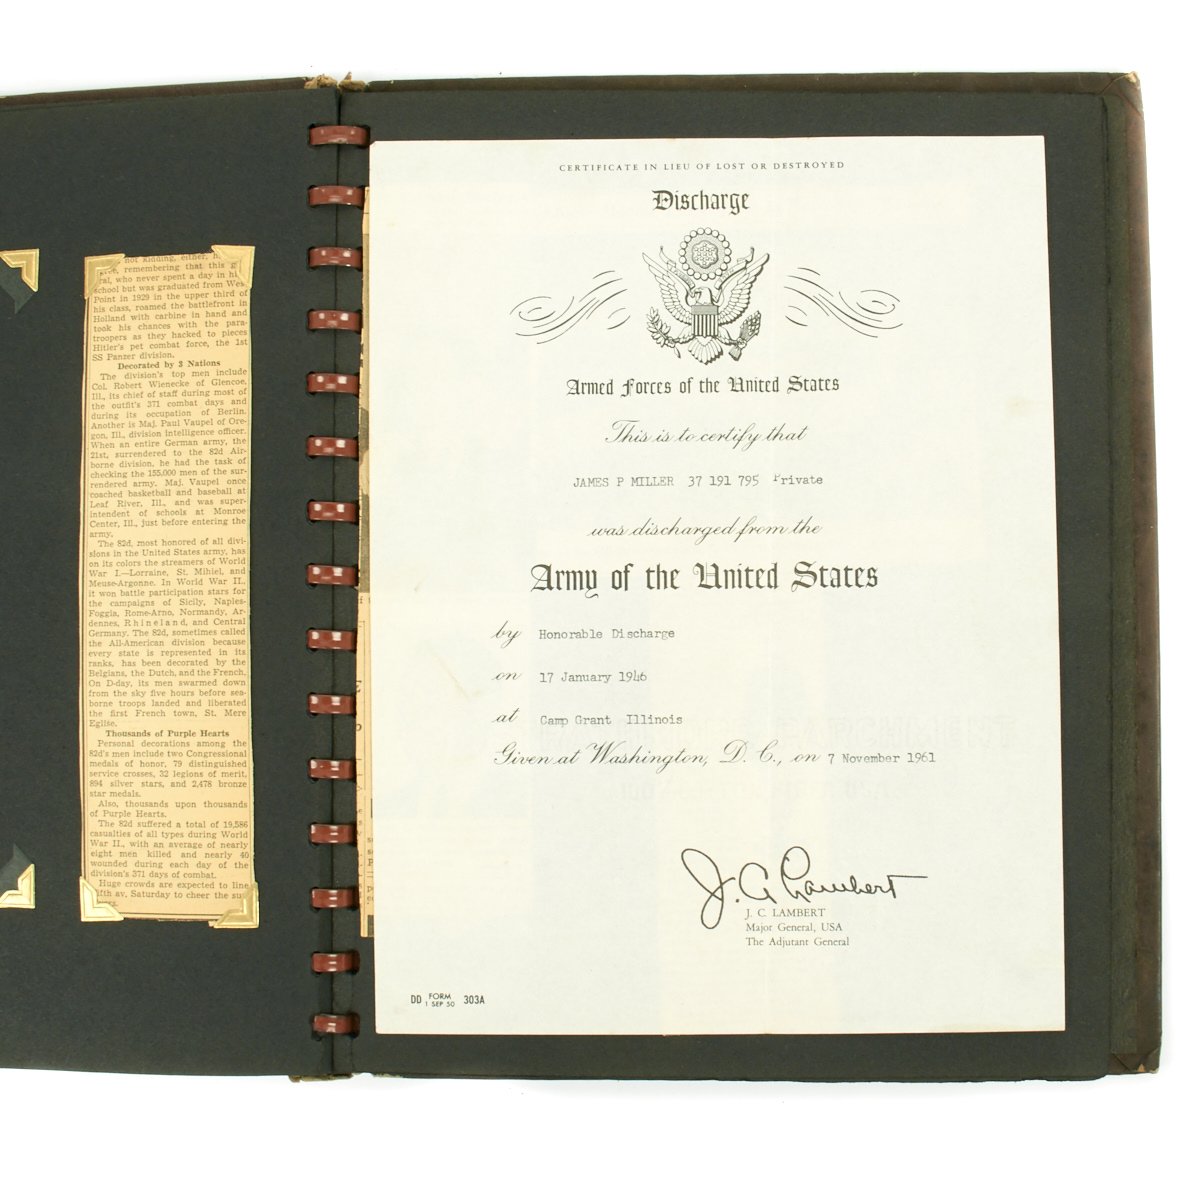 not kidding, either,
remembering that this
ral, who never spent a day in
school but was graduated from West
Point in 1929 in the upper third of
his class, roamed the battlefront in
Holland with carbine in hand and
took his chances with the para-
troopers as they hacked to pieces
Hitler's pet combat force, the 1st
SS Panzer division.
Decorated by 3 Nations
The division's top men include
Col. Robert Wienecke of Glencoe,
Ill., its chief of staff during most of
the outfit's 371 combat days and
during its occupation of Berlin.
Another is Maj. Paul Vaupel of Ore-
gon, Ill., division intelligence officer.
When an entire German army, the
21st, surrendered to the 82d Air-
borne division, he had the task of
checking the 155,000 men of the sur-
rendered army. Maj. Vaupel once
coached basketball and baseball at
Leaf River, Ill., and was super-
intendent of schools at Monroe
Center, Ill., just before entering the
army.
The 82d, most honored of all divi-
sions in the United States army, has
on its colors the streamers of World
War I.—Lorraine, St. Mihiel, and
Meuse-Argonne. In World War II.,
it won battle participation stars for
the campaigns of Sicily, Naples-
Foggia, Rome-Arno, Normandy, Ar-
dennes, Rhineland, and Central
Germany. The 82d, sometimes called
the All-American division because
every state is represented in its
ranks, has been decorated by the
Belgians, the Dutch, and the French.
On D-day, its men swarmed down
from the sky five hours before sea-
borne troops landed and liberated
the first French town, St. Mere
Eglise.
Thousands of Purple Hearts
Personal decorations among the
82d's men include two Congressional
medals of honor, 79 distinguished
service crosses, 32 legions of merit,
894 silver stars, and 2,478 bronze
star medals.
Also, thousands upon thousands
of Purple Hearts.
The 82d suffered a total of 19,586
casualties of all types during World
War II., with an average of nearly
eight men killed and nearly 40
wounded during each day of the
division's 371 days of combat.
Huge crowds are expected to line
Fifth av. Saturday to cheer the
CERTIFICATE IN LIEU OF LOST OR DESTROYED
Discharge
Armed Forces of the United States
This is to certify that
JAMES P MILLER 37 191 795 Private
was discharged from the
Army of the United States
by Honorable Discharge
on 17 January 1946
at Camp Grant Illinois
Given at Washington, D. C., on 7 November 1961
J. C. Lambert
J. C. LAMBERT
Major General, USA
The Adjutant General
DD FORM 1 SEP 50 303A